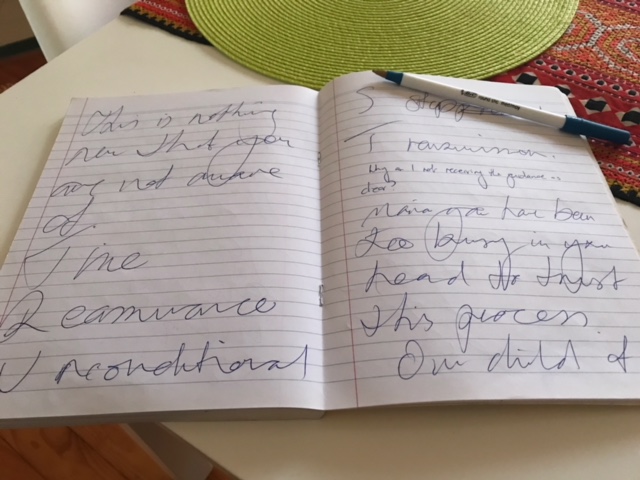 This is nothing
new that you
are not aware
of
Time
Reassurance
Unconditional
S
Transmission.
Why am I not receiving the guidance as
clear?
Maria you have been
too busy in your
head to trust
this process.
Our child of